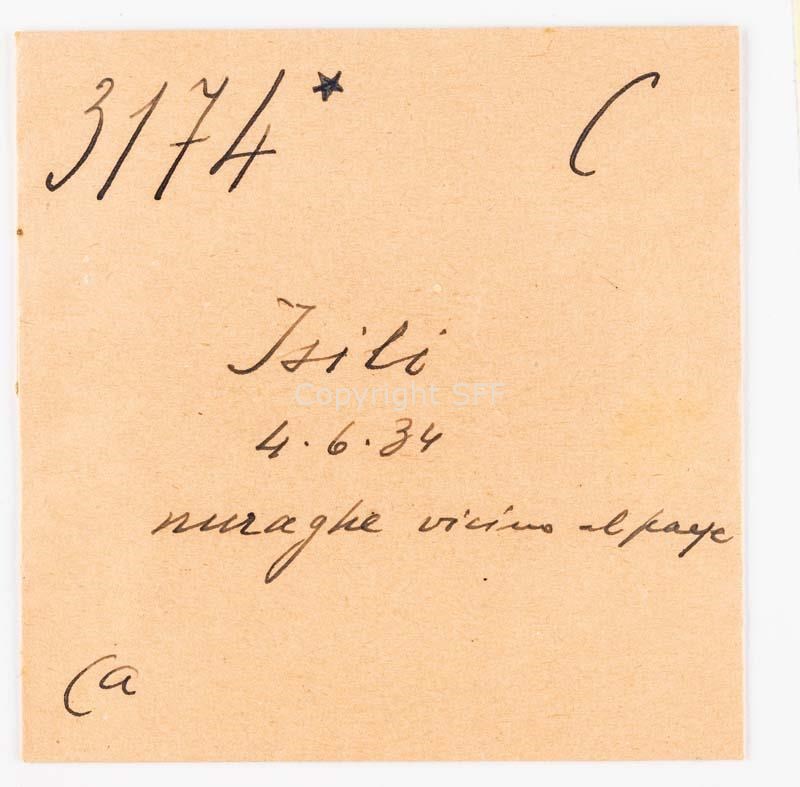 3174* C
Isili
Copyright SFF
4.6.34
nuraghe vicino al paese
Ca